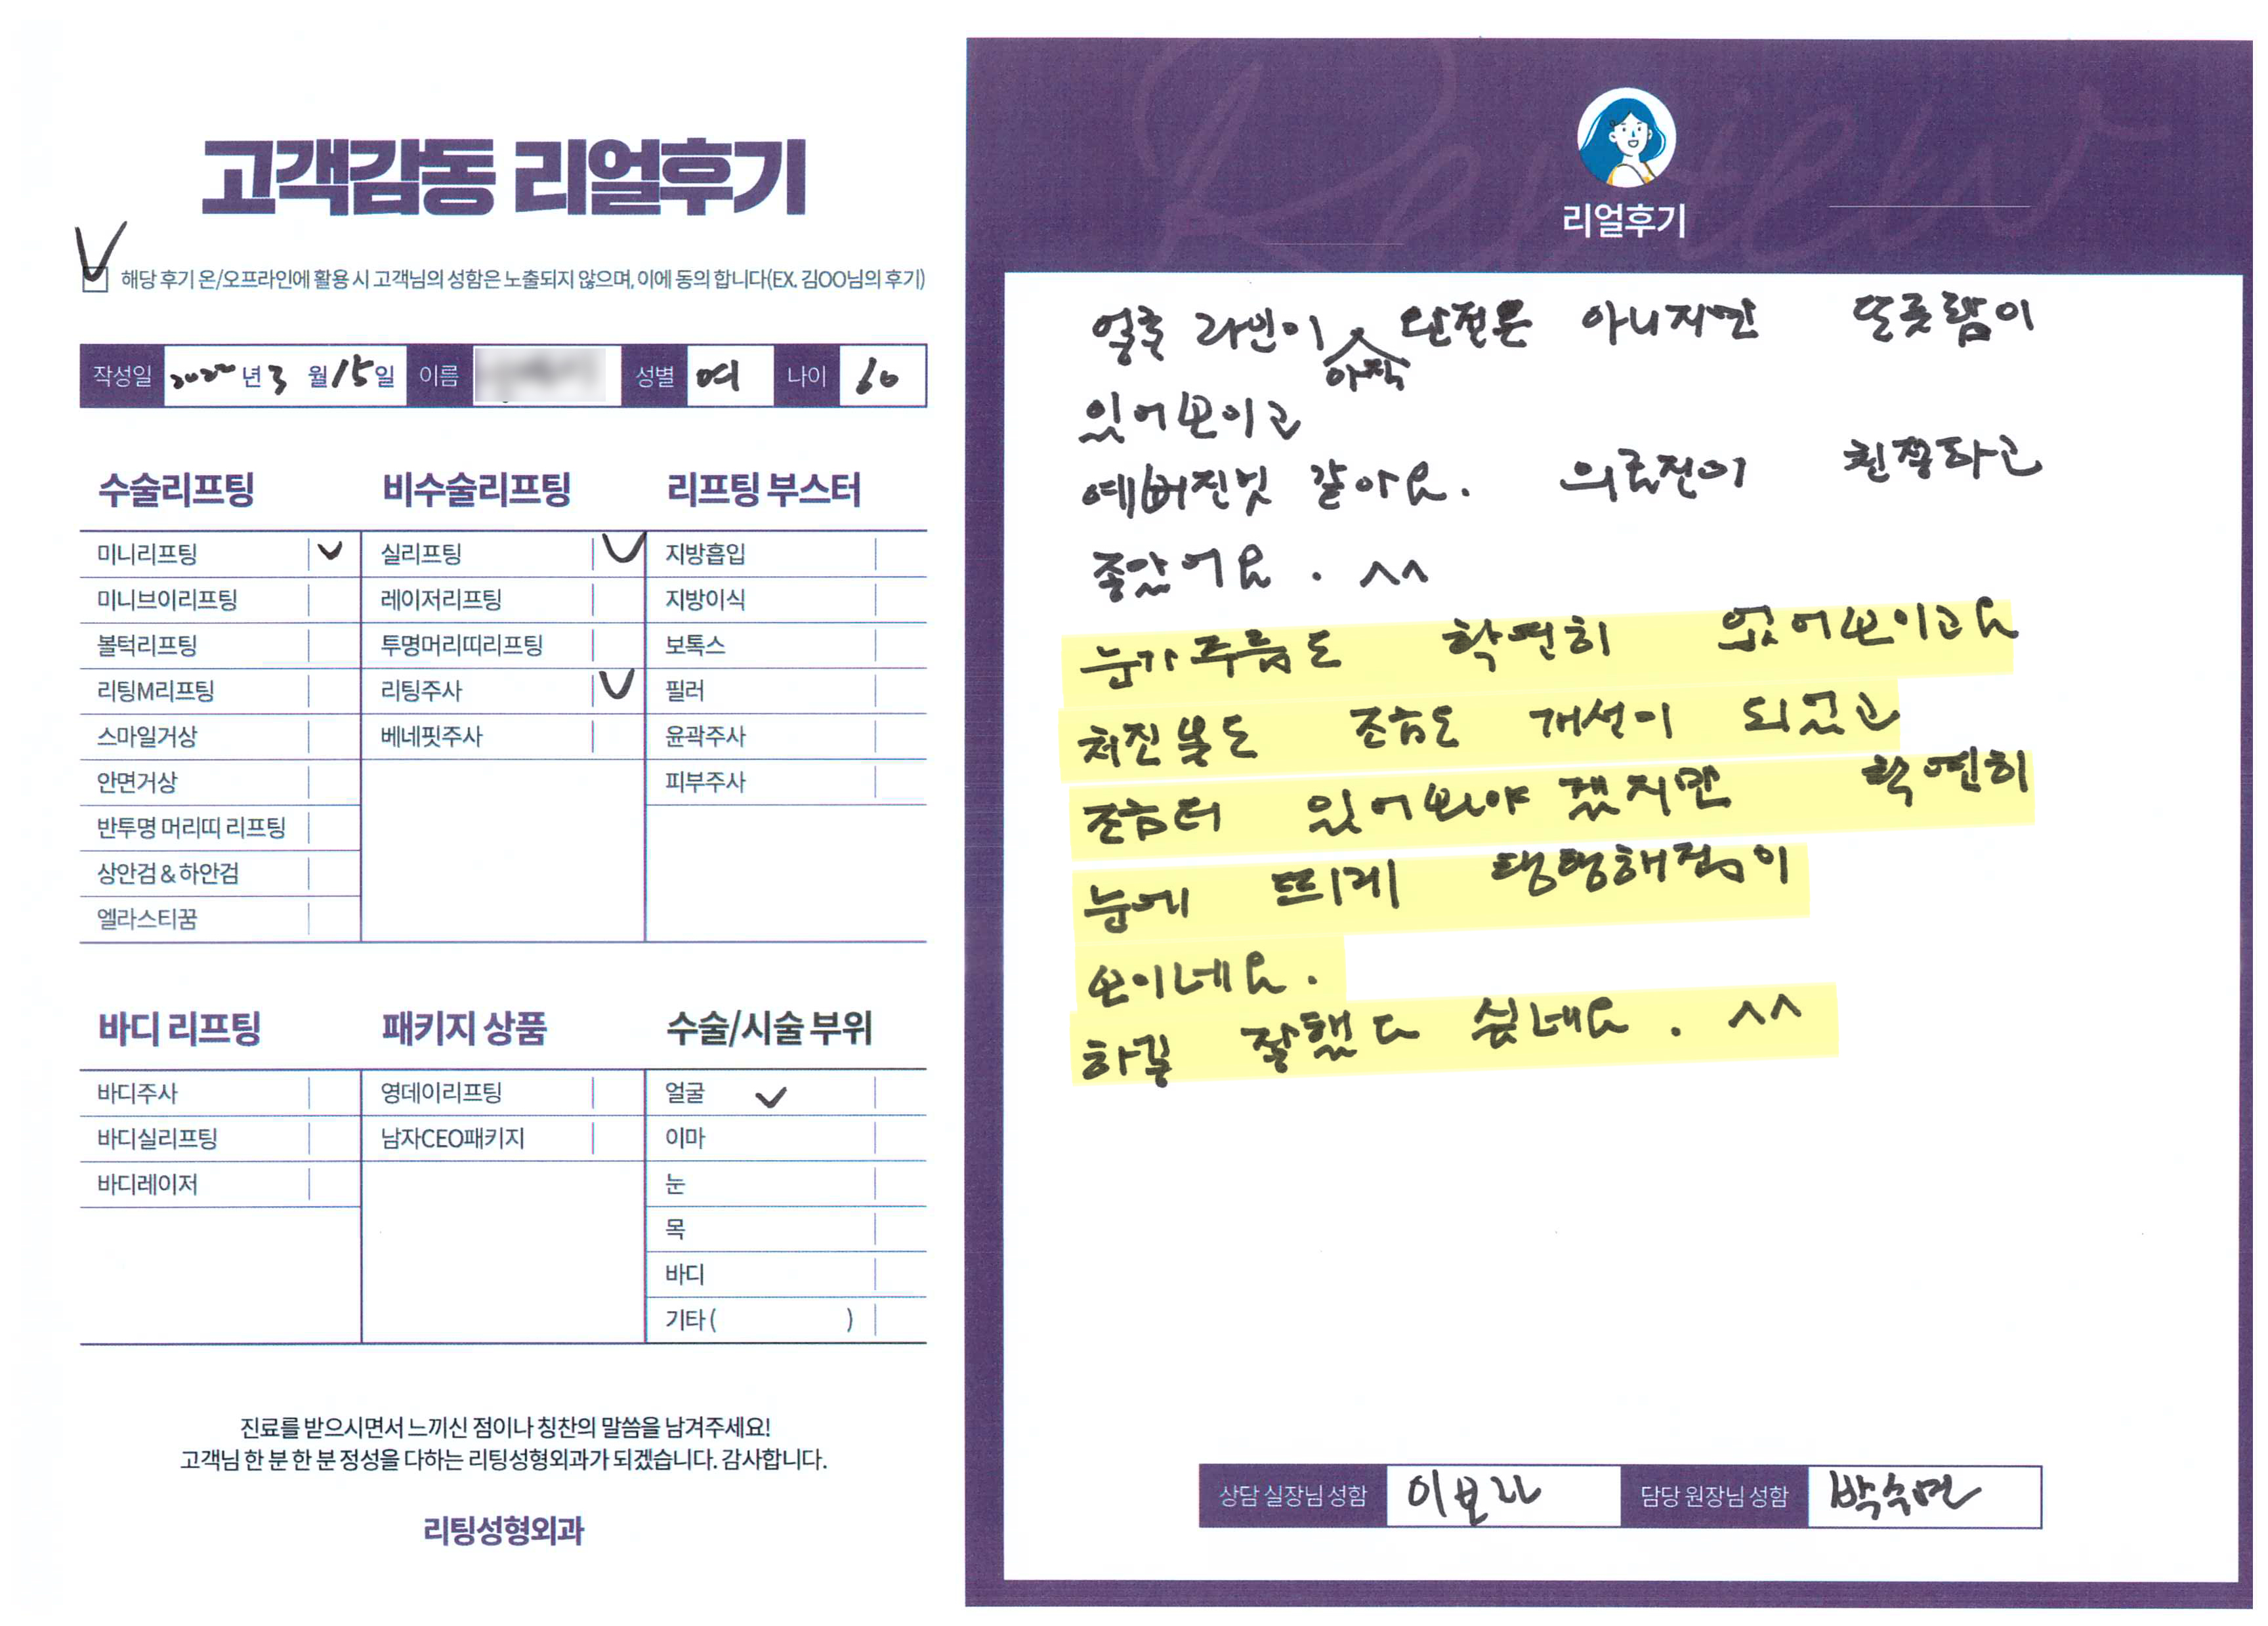 고객감동 리얼후기
해당 후기 온/오프라인에 활용 시 고객님의 성함은 노출되지 않으며, 이에 동의 합니다(EX. 김OO님의 후기)
작성일 2022년 3월 15일 이름 성별 여 나이 60
수술리프팅 비수술리프팅 리프팅 부스터
미니리프팅 실리프팅 지방흡입
미니브이리프팅 레이저리프팅 지방이식
볼턱리프팅 투명머리띠리프팅 보톡스
리팅M리프팅 리팅주사 필러
스마일거상 베네핏주사 윤곽주사
안면거상 피부주사
반투명 머리띠 리프팅
상안검 & 하안검
엘라스티꿈
바디 리프팅 패키지 상품 수술/시술 부위
바디주사 영데이리프팅 얼굴
바디실리프팅 남자CEO패키지 이마
바디레이저 눈
목
바디
기타 ( )
진료를 받으시면서 느끼신 점이나 칭찬의 말씀을 남겨주세요!
고객님 한 분 한 분 정성을 다하는 리팅성형외과가 되겠습니다. 감사합니다.
리팅성형외과
Review
리얼후기
얼굴 라인이 아직 완전은 아니지만 또렷함이
있어보이고
예뻐진것 같아요. 의료진이 친절하고
좋았어요. ^^
눈가주름도 확연히 없어보이고요
처진볼도 조금은 개선이 되었고
조금더 있어보아야 겠지만 확연히
눈에 띄게 탱탱해짐이
보이네요.
하길 잘했다 싶네요. ^^
상담 실장님 성함 이보라 담당 원장님 성함 박수연